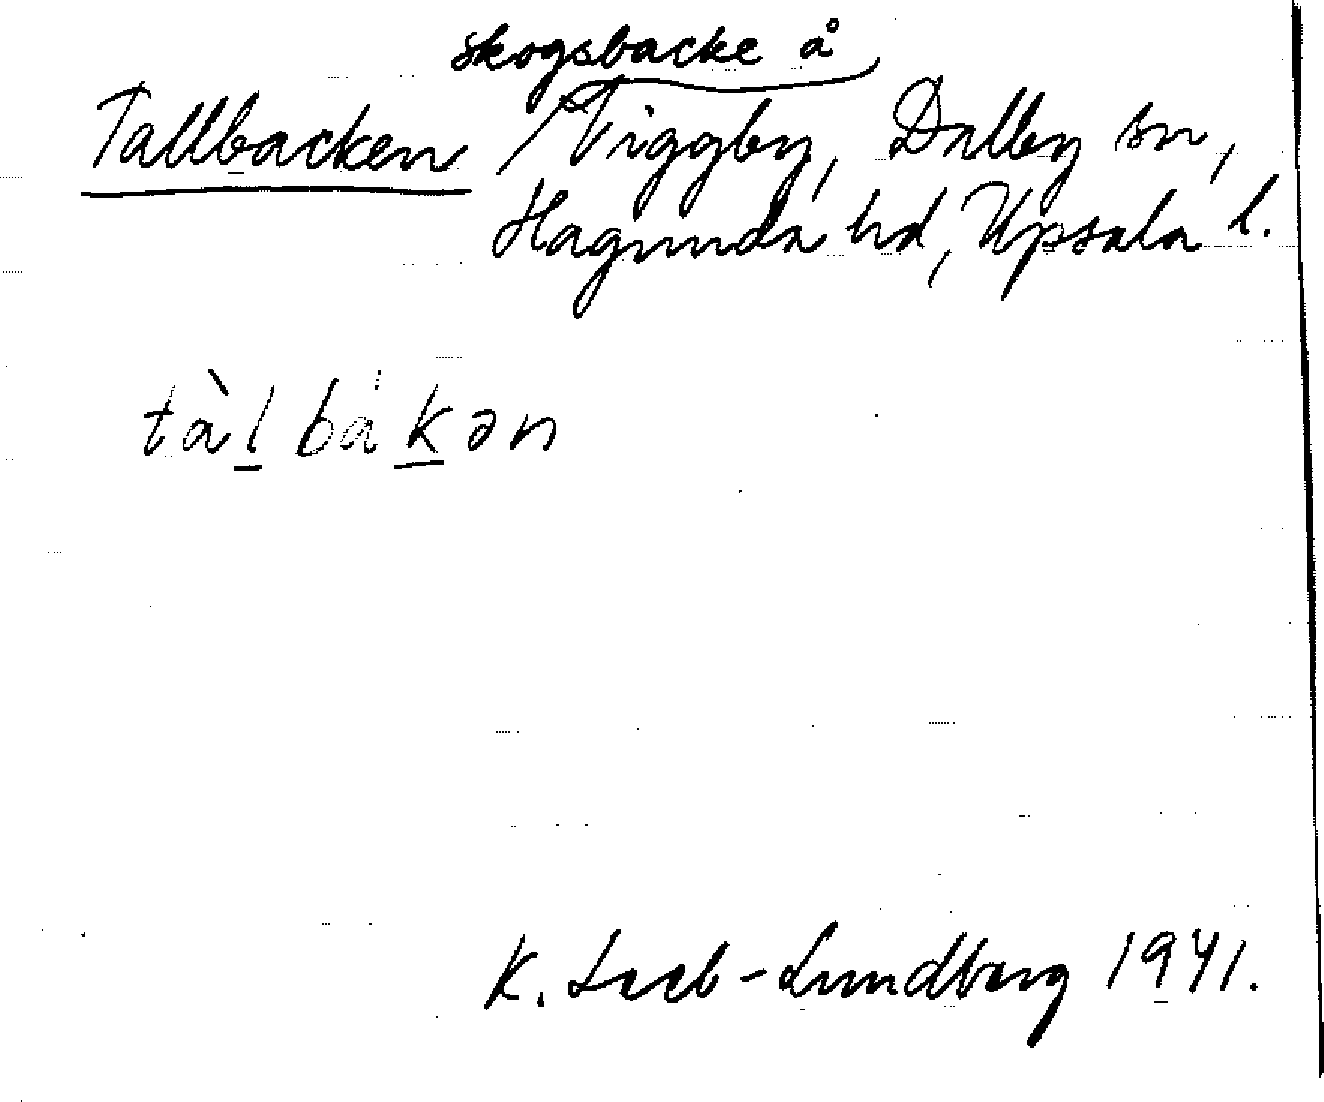 skogsbacke å
Tallbacken / Viggby, Dalby sn,
Hagunda hd, Upsala l.
tàl bákən
K. Leeb-Lundberg 1941.